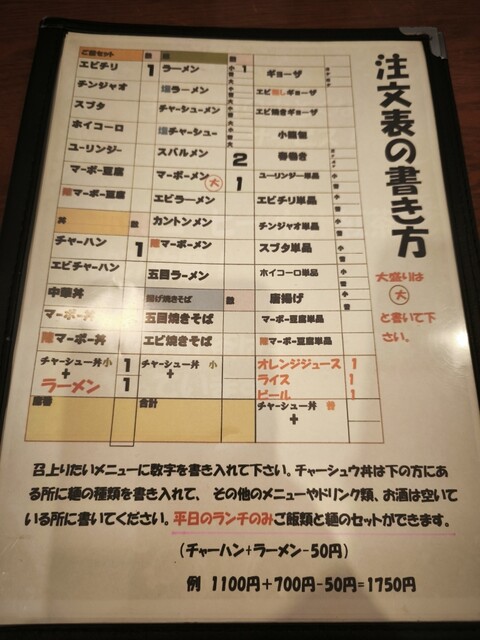 注文表の書き方
大盛りは
大
と書いて下
さい。
ご飯セット 数
エビチリ 1
チンジャオ
スブタ
ホイコーロ
ユーリンジー
マーボー豆腐
陳マーボー豆腐
丼 数
チャーハン 1
エビチャーハン
中華丼
マーボー丼
陳マーボー丼
チャーシュー丼 小 1
+
ラーメン 1
麺 数
ラーメン 1
塩ラーメン
チャーシューメン
塩チャーシュー
スパルメン 2
マーボーメン 大 1
エビラーメン
カントンメン
陳マーボーメン
五目ラーメン
揚げ焼きそば 数
五目焼きそば
エビ焼きそば
チャーシュー丼 小
+
合計
ギョーザ
エビ蒸しギョーザ
エビ焼きギョーザ
小籠包
春巻き
ユーリンジー単品
エビチリ単品
チンジャオ単品
スブタ単品
ホイコーロ単品
唐揚げ
マーボー豆腐単品
陳マーボー豆腐単品
オレンジジュース 1
ライス 1
ビール 1
チャーシュー丼 普
+
召上りたいメニューに数字を書き入れて下さい。チャーシュウ丼は下の方にあ
る所に麺の種類を書き入れて、その他のメニューやドリンク類、お酒は空いて
いる所に書いてください。平日のランチのみご飯類と麺のセットができます。
(チャーハン+ラーメン-50円)
例 1100円+700円-50円=1750円